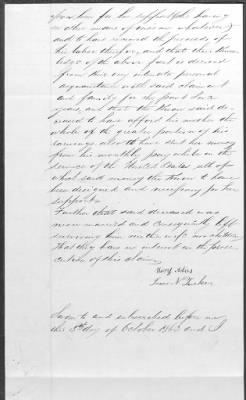 upon him for her support she having
no other means of income whatsoever
and to have received the proceeds of
his labor therefor, and that their know
ledge of the above facts is derived
from their very intimate personal
acquaintance with said claimant
and family for the past
years, and that they know said de
ceased to have afford his mother the
whole of the greater portion of his
earnings also to have sent her money
from his monthly pay while in the
service of the United States all of
which said money they know to have
been designed and necessary for her
support.
Further that said deceased was
non married and consequently left
surviving him neither wife nor children
That they have no interest in the prose
cution of this claim
James N.
Sworn to and subscribed before me
this 5th day of October 1863 and I